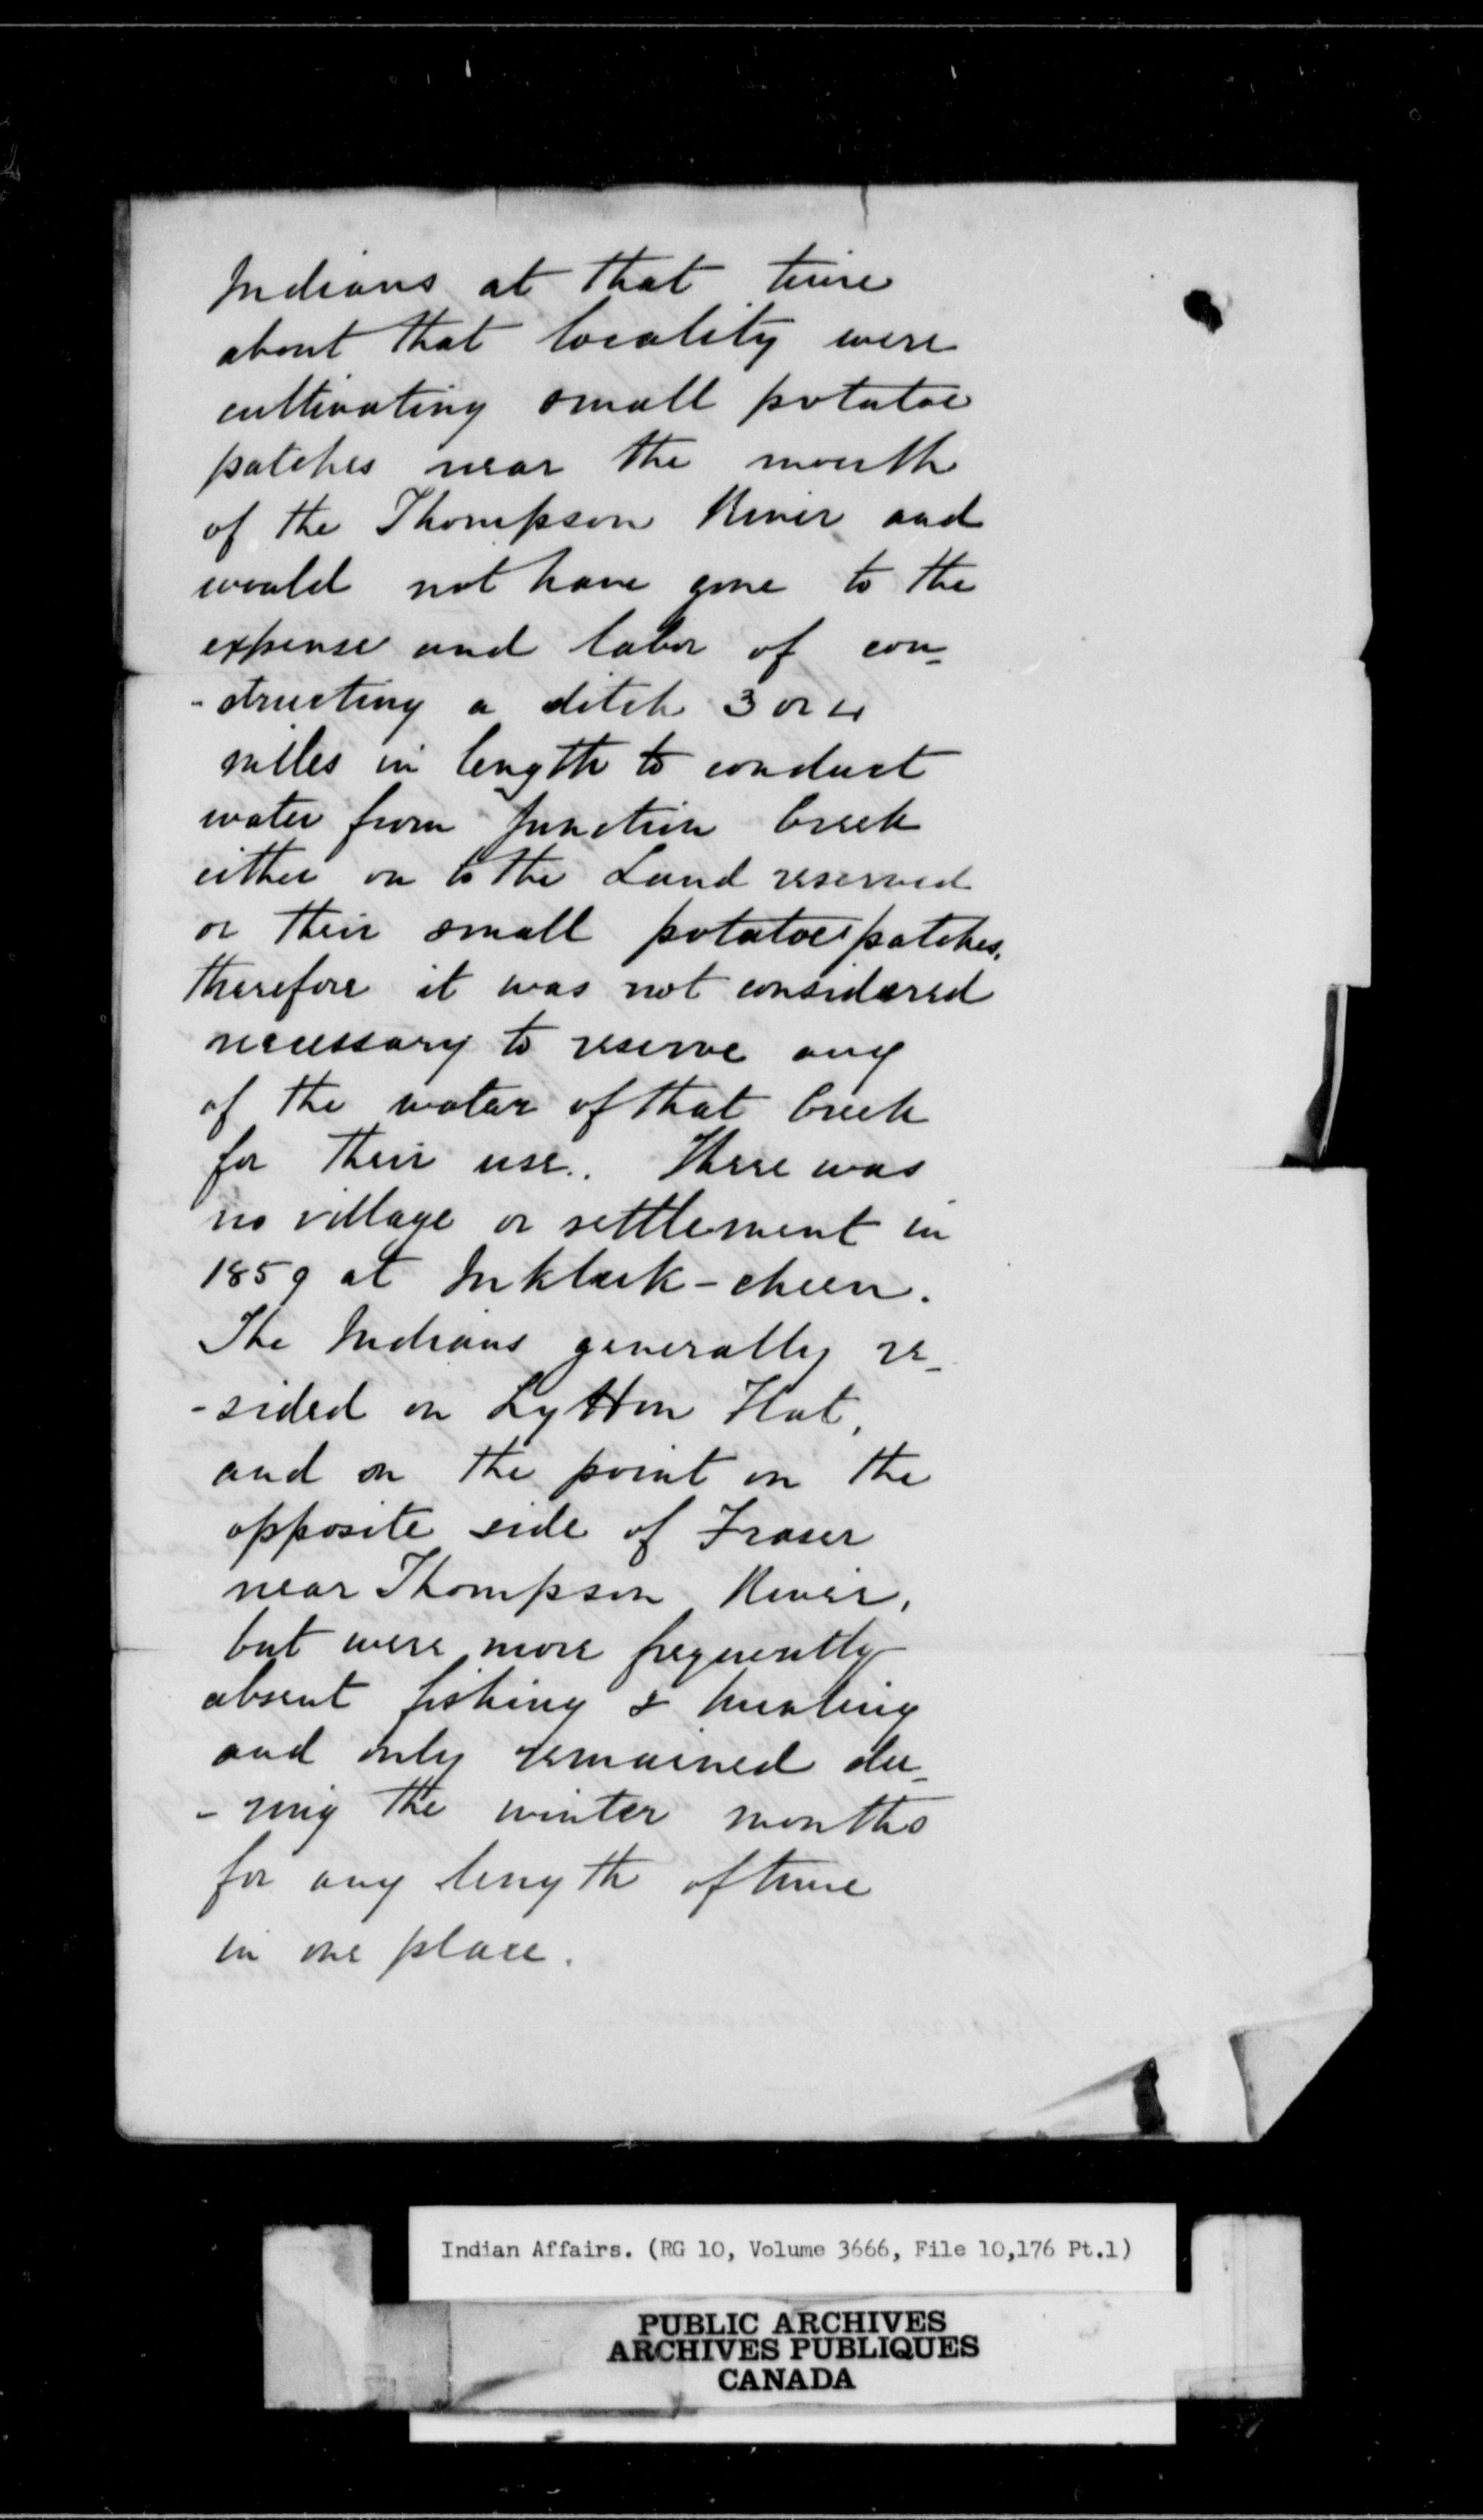 Indians at that time
about that locality were
cultivating small potatoe
patches near the mouth
of the Thompson River and
would not have gone to the
expense and labor of con-
-structing a ditch 3 or 4
miles in length to conduct
water from Junction Creek
either on to the Land reserved
or their small potatoe patches,
therefore it was not considered
necessary to reserve any
of the water of that Creek
for their use. There was
no village or settlement in
1859 at Inkluk-cheen.
The Indians generally re-
-sided on Lytton Flat,
and on the point on the
opposite side of Fraser
near Thompson River,
but were more frequently
absent fishing & hunting
and only remained du-
-ring the winter months
for any length of time
in one place.
Indian Affairs. (RG 10, Volume 3666, File 10,176 Pt.1)
PUBLIC ARCHIVES
ARCHIVES PUBLIQUES
CANADA